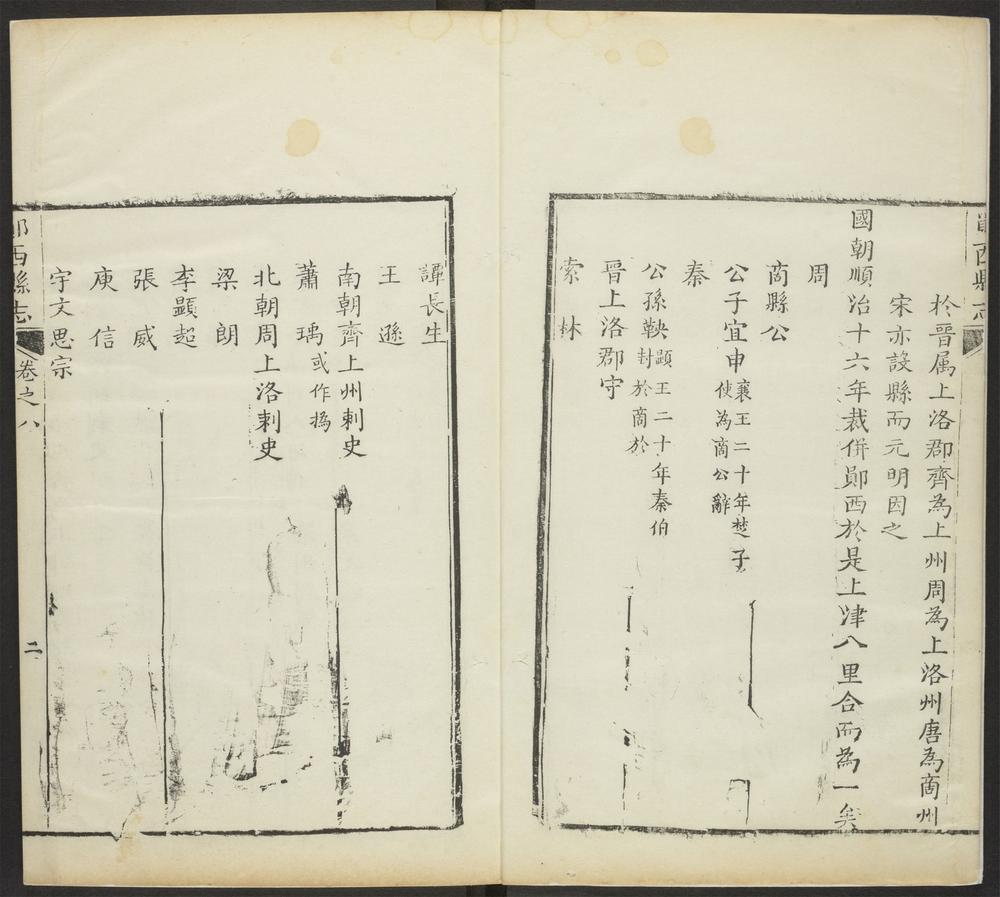 於晉属上洛郡齊為上州周為上洛州唐為商州
宋亦設縣而元明因之
國朝順治十六年裁併鄖西於是上津八里合而為一矣
周
商縣公
公子宜申襄王二十年楚子
使為商公辭
秦
公孫鞅顯王二十年秦伯
封於商於
晉上洛郡守
索林
譚長生
王遜
南朝齊上州刺史
蕭瑀或作撝
北朝周上洛刺史
梁朗
李顯超
張威
庾信
宇文思宗
西縣志
卷之八
二